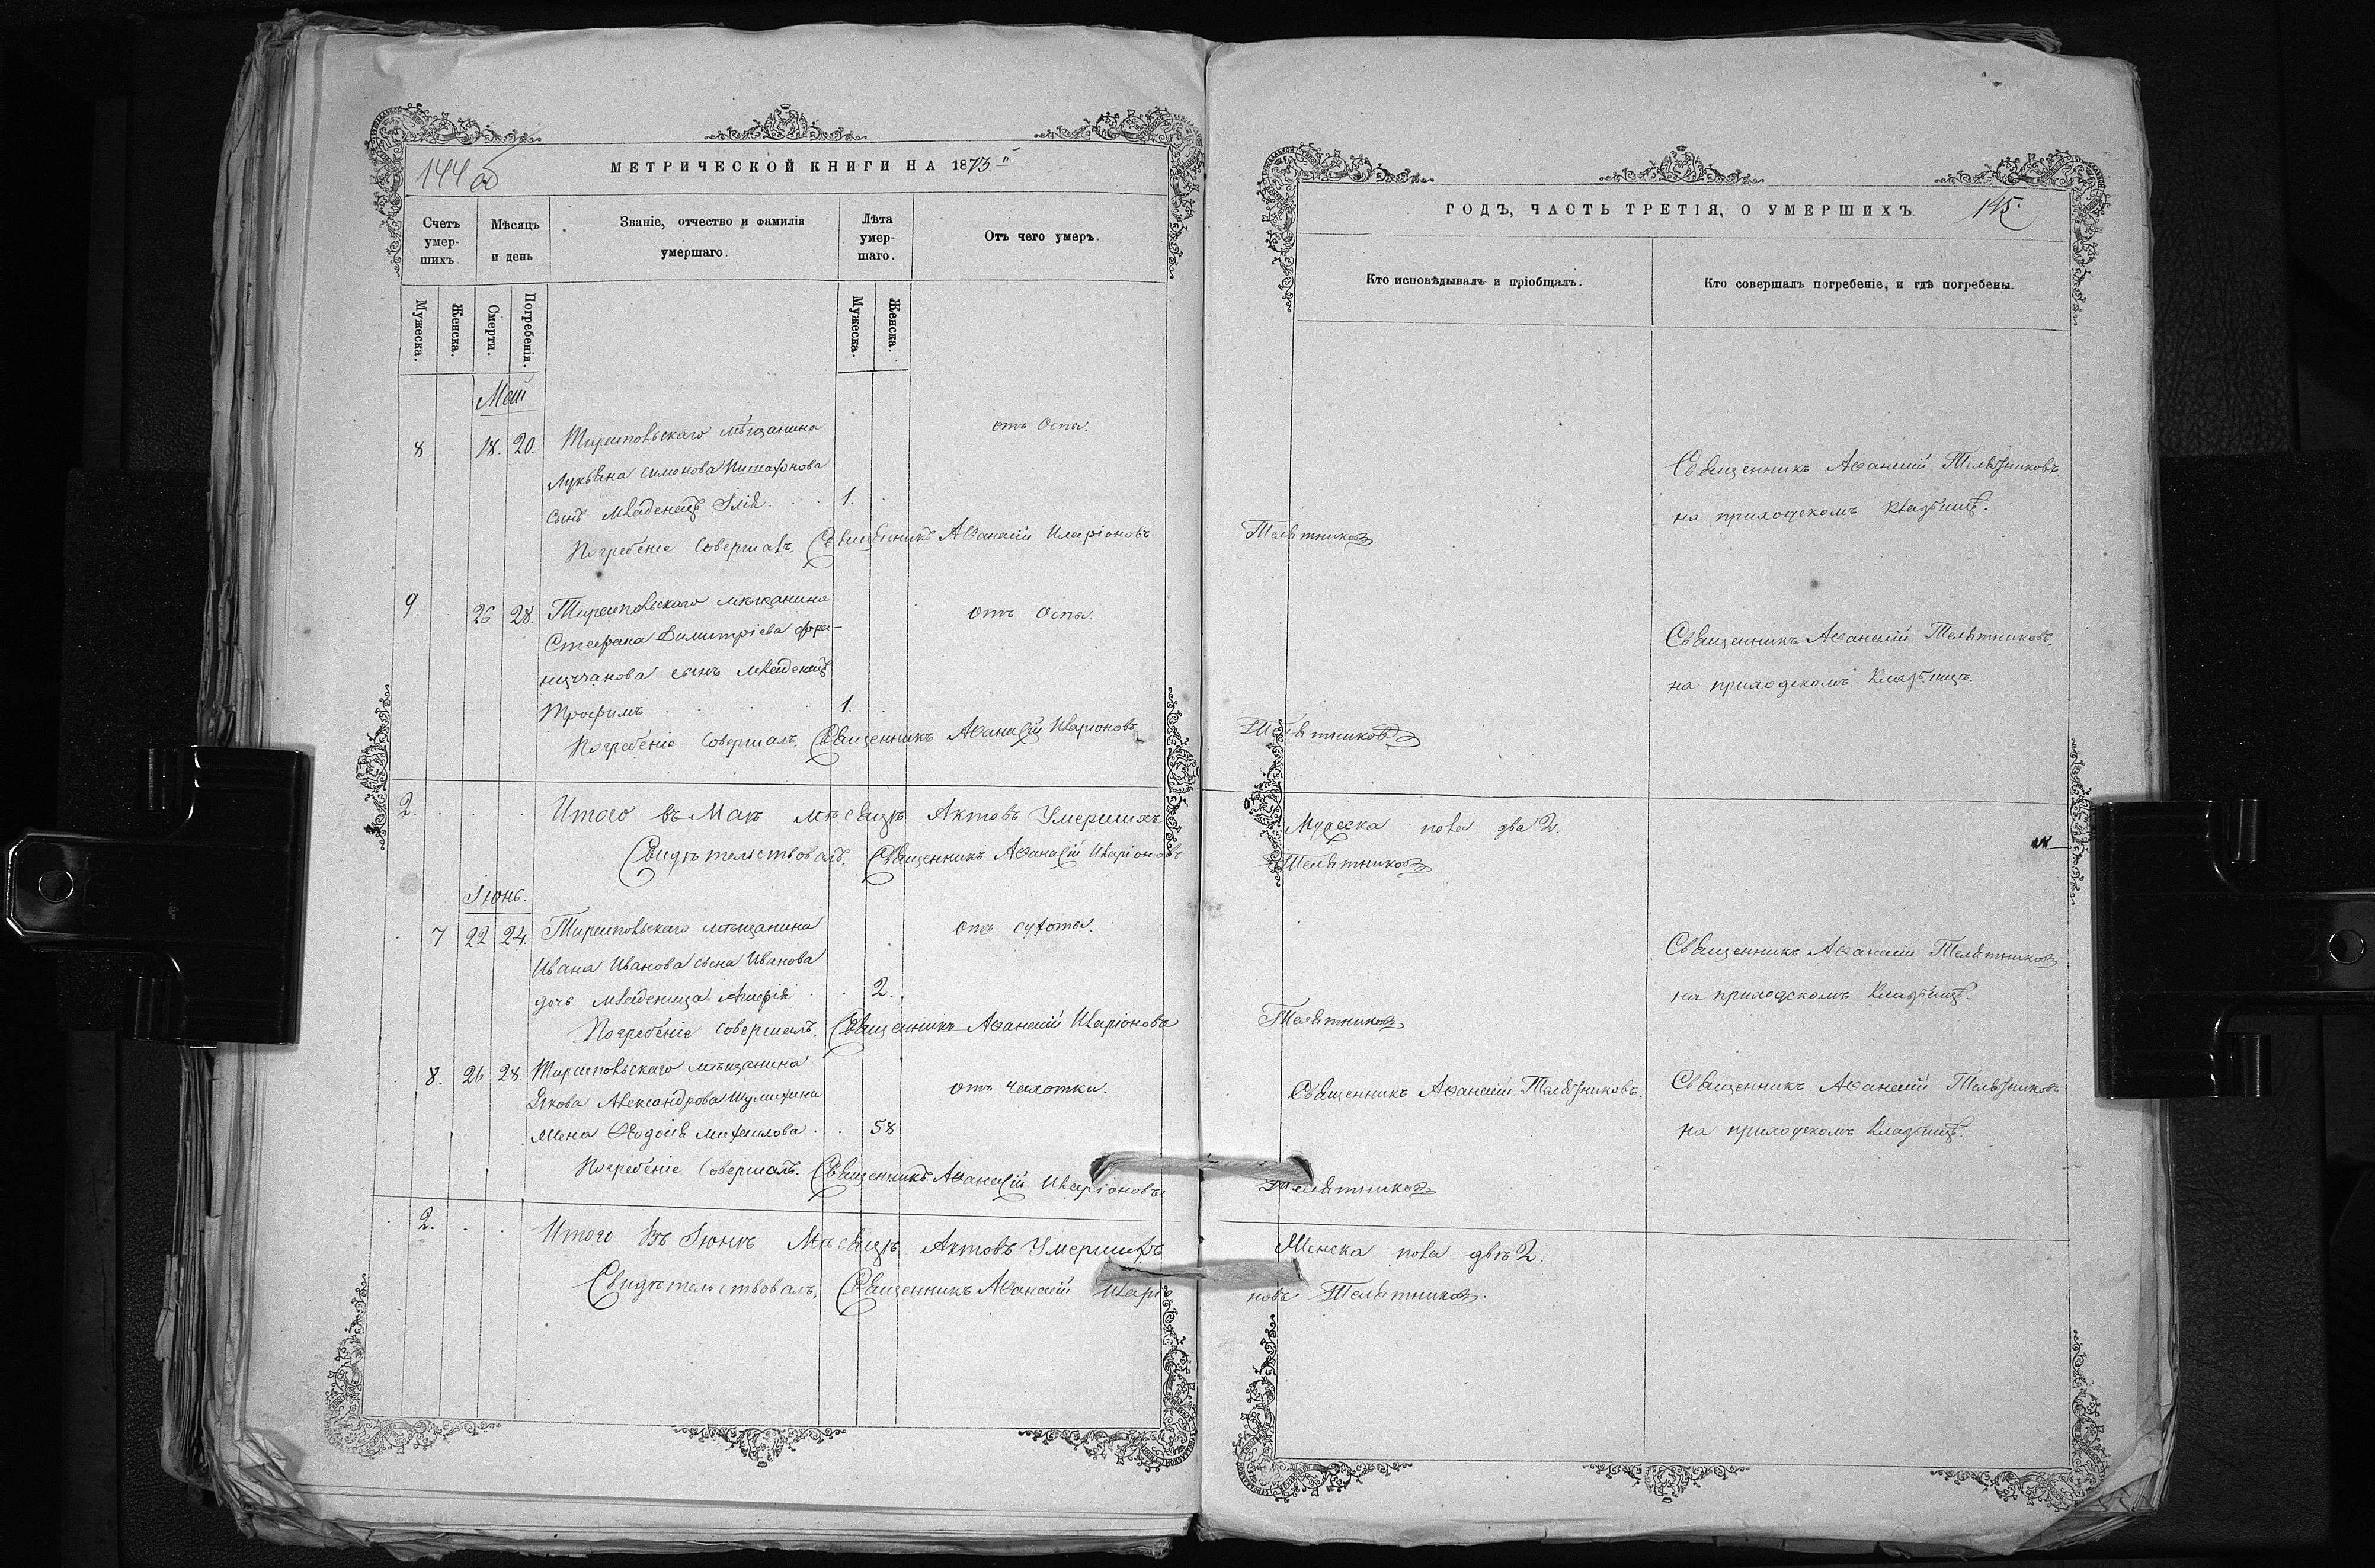 144 об
МЕТРИЧЕСКОЙ КНИГИ НА 1873 й
Счетъ умер-шихъ.
Мѣсяцъ и день
Званіе, отчество и фамилія умершаго.
Лѣта умер-шаго.
Отъ чего умеръ.
Мужеска.
Женска.
Смерти.
Погребенія.
Мужеска.
Женска.
Май
8 18. 20. Тираспольскаго мѣщанина отъ Оспы.
Лукьяна Симонова
сынъ младенецъ Илія 1.
Погребеніе Совершалъ, Священникъ Аѳанасій Иларіоновъ
9. 26 28. Тираспольскаго мѣщанина отъ Оспы.
Стефана Димитріева
сынъ младенецъ
Трофимъ 1.
Погребеніе Совершалъ, Священникъ Аѳанасій Иларіоновъ
2. Итого въ Маѣ мѣсяцѣ Актовъ Умершихъ
Свидѣтельствовалъ, Священникъ Аѳанасій Иларіоновъ
Іюнь.
7 22 24. Тираспольскаго мѣщанина отъ сухоты.
Ивана Иванова сына Иванова
дочь младеница 2.
Погребеніе совершалъ, Священникъ Аѳанасій Иларіоновъ
8. 26 28. Тираспольскаго мѣщанина отъ чахотки.
Якова Александрова
жена Ѳеодосія Михаилова 58
Погребеніе Совершалъ. Священникъ Аѳанасій Иларіоновъ
2. Итого въ Іюнѣ Мѣсяцѣ Актовъ Умершихъ
Свидѣтельствовалъ, Священникъ Аѳанасій Иларіо
ГОДЪ, ЧАСТЬ ТРЕТІЯ, О УМЕРШИХЪ. 145.
Кто исповѣдывалъ и пріобщалъ.
Кто совершалъ погребеніе, и гдѣ погребены.
Священникъ Аѳанасій Телятниковъ
на приходскомъ кладбищѣ.
Телятниковъ
Священникъ Аѳанасій Телятниковъ,
на приходскомъ Кладбищѣ.
Телятниковъ
Мужеска пола два 2.
Телятниковъ
Священникъ Аѳанасій Телятниковъ
на приходскомъ Кладбищѣ.
Телятниковъ
Священникъ Аѳанасій Телятниковъ. Священникъ Аѳанасій Телятниковъ
на приходскомъ Кладбищѣ.
Телятниковъ
Женска пола двѣ 2.
новъ Телятниковъ.